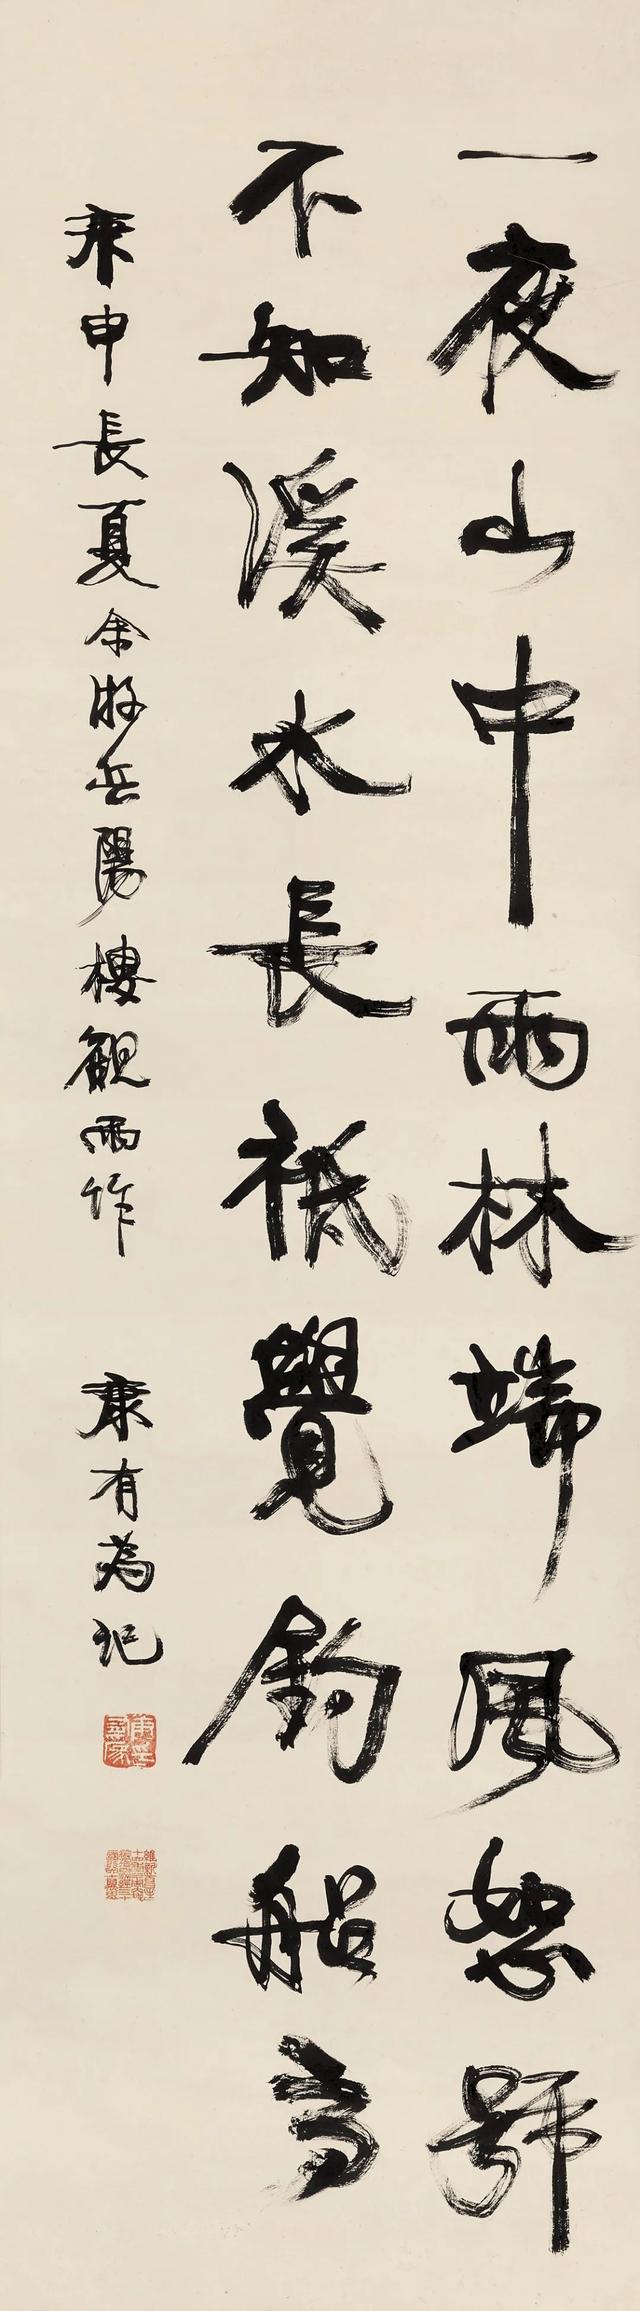 一夜山中雨林端風怒號
不知溪水長祗覺釣船高
庚申長夏余游岳陽樓觀雨作 康有為記